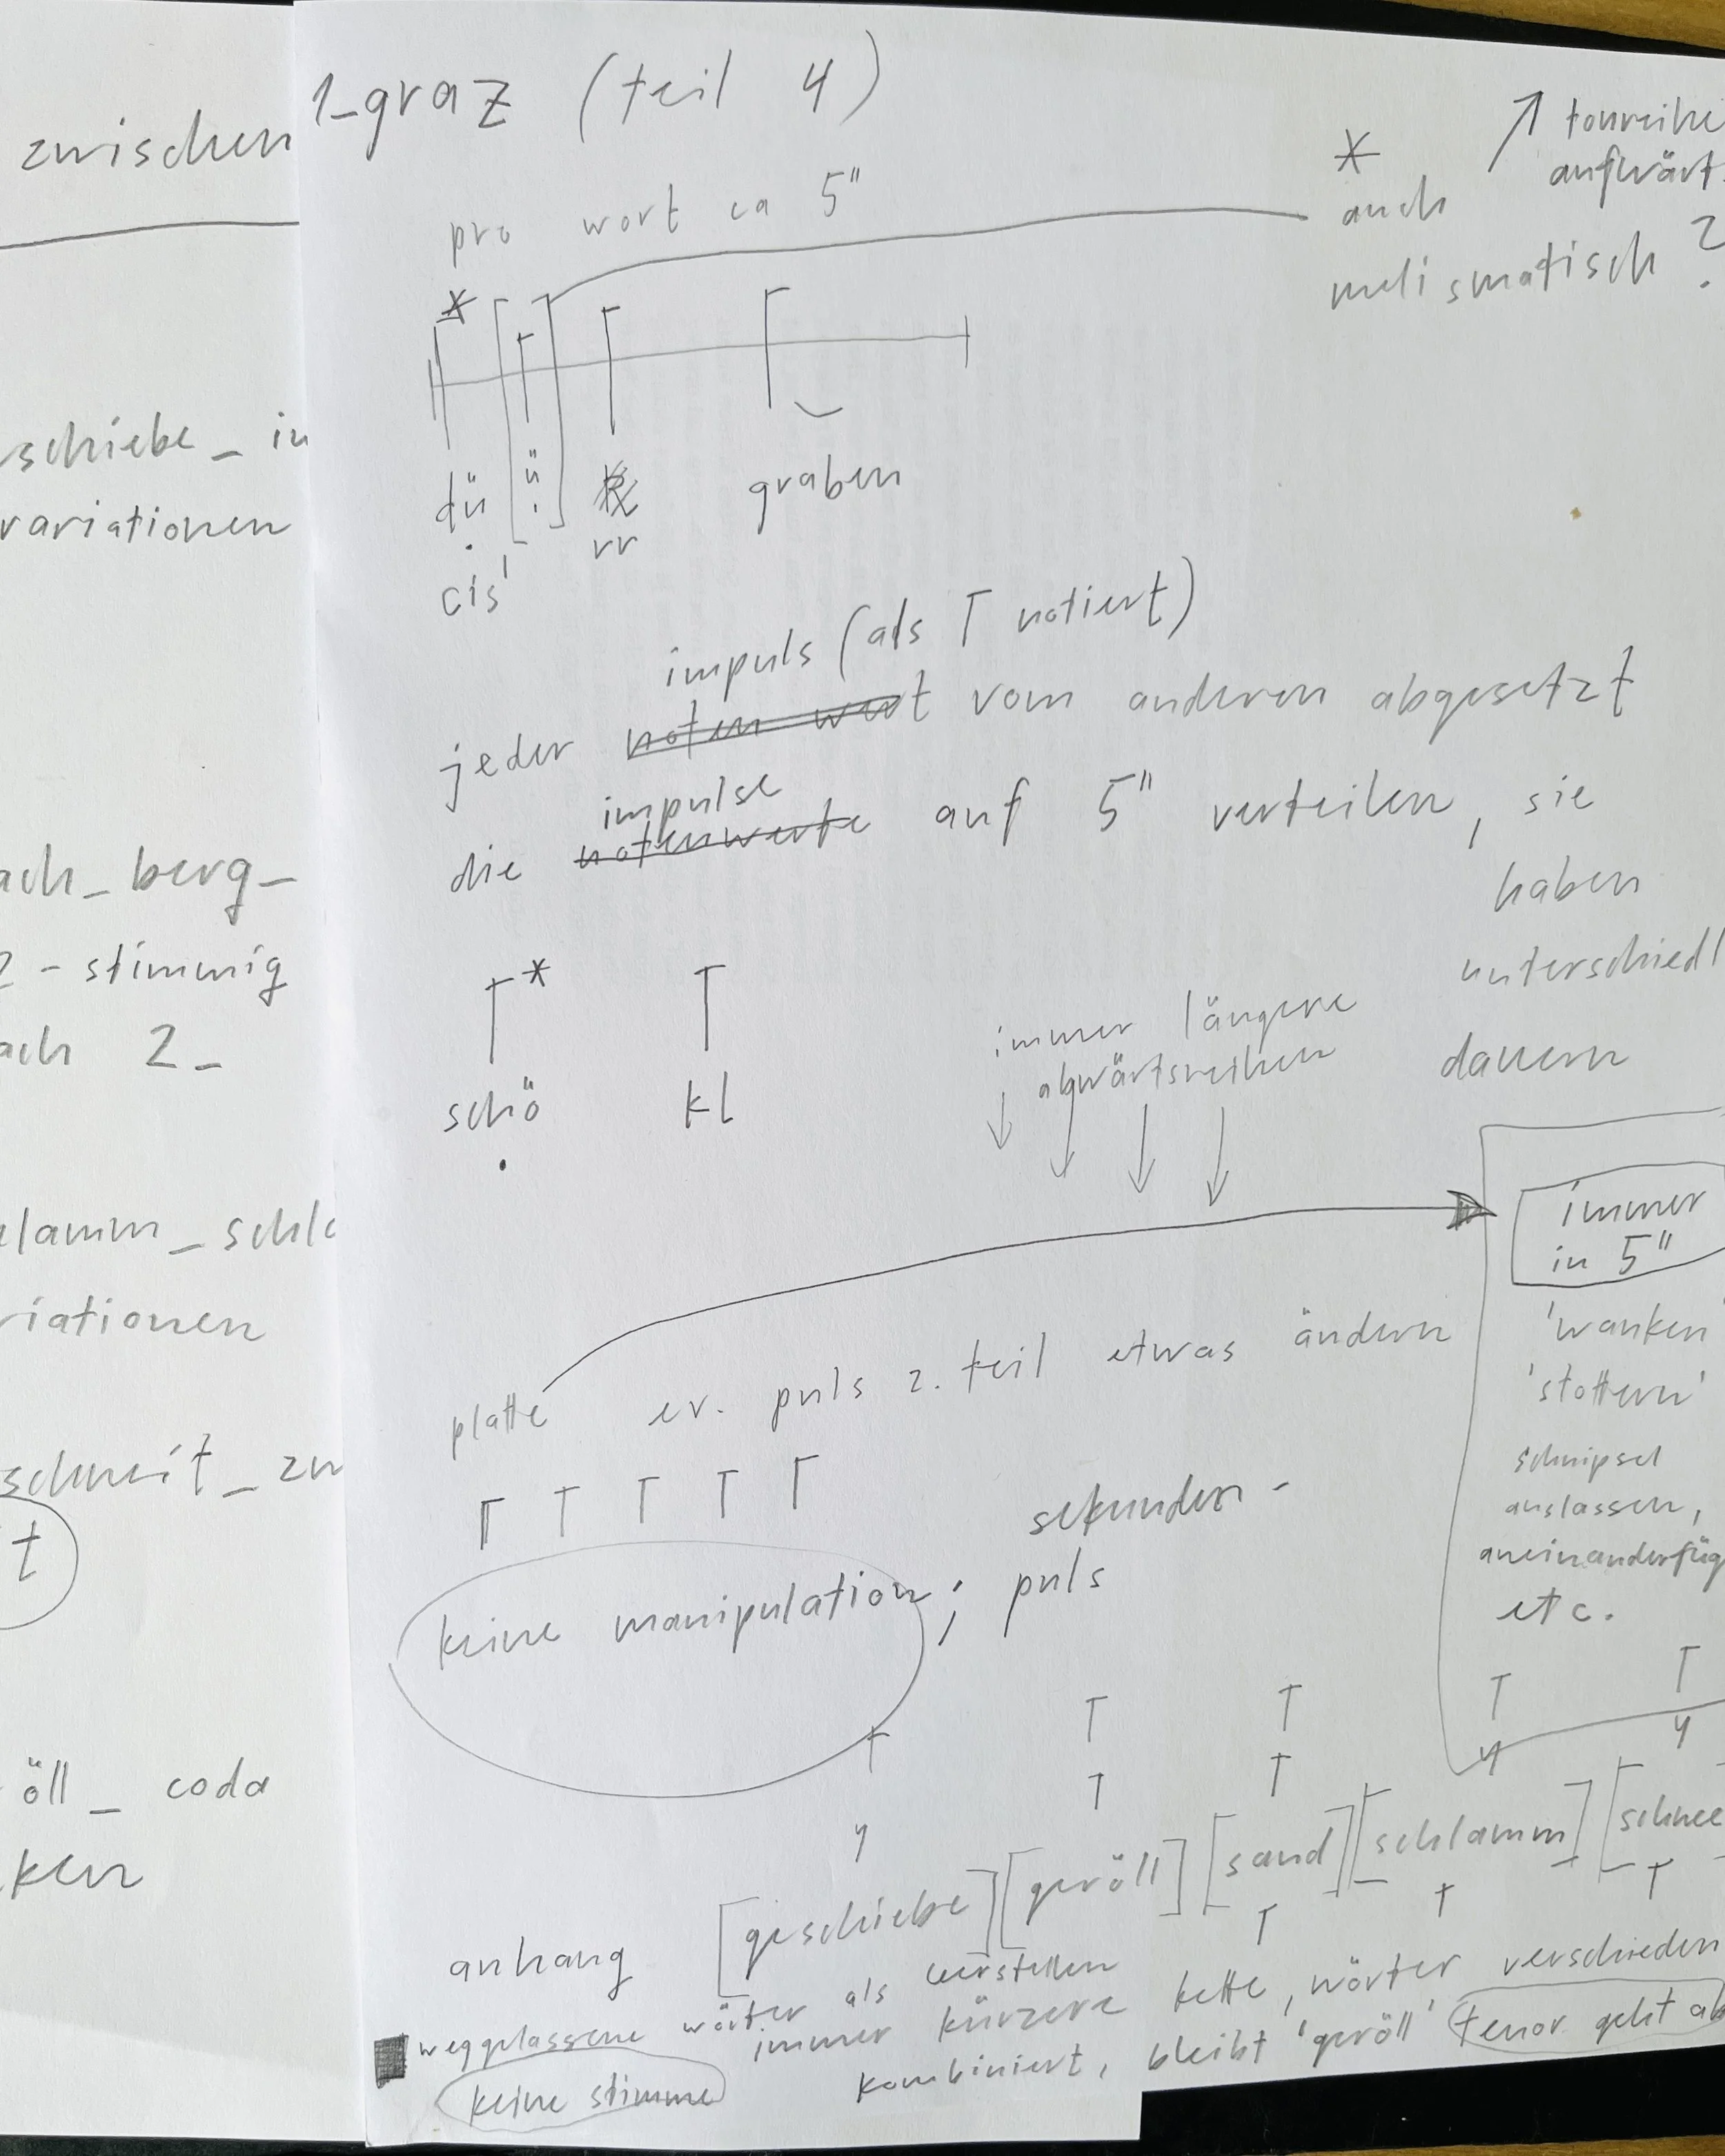 zwischen
schiebe_in
variationen
ach_berg_
2-stimmig
ach 2_
lamm_schl
riationen
schneit_zw
t
öll_ coda
ken
1_graz (teil 4)
pro wort ca 5"
* auch melismatisch ?
↗ tonreihe
aufwärts
*
dü [ü] rr graben
cis'
impuls (als Γ notiert)
jeder notenwert vom anderen abgesetzt
impulse
die notenwerte auf 5" verteilen, sie
haben
unterschiedl
dauern
*
schö kl
immer längere
abwärtsreihen
↓ ↓ ↓ ↓
immer
in 5"
'wanken'
'stottern'
schnipsel
auslassen,
aneinanderfüg
etc.
platte ev. puls 2. teil etwas ändern
keine manipulation; sekunden-
puls
anhang [geschiebe] [geröll] [sand] [schlamm] [schnee
weggelassene wörter als leerstellen
immer kürzere kette, wörter verschieden
kombiniert, bleibt 'geröll' tenor geht ab
keine stimme